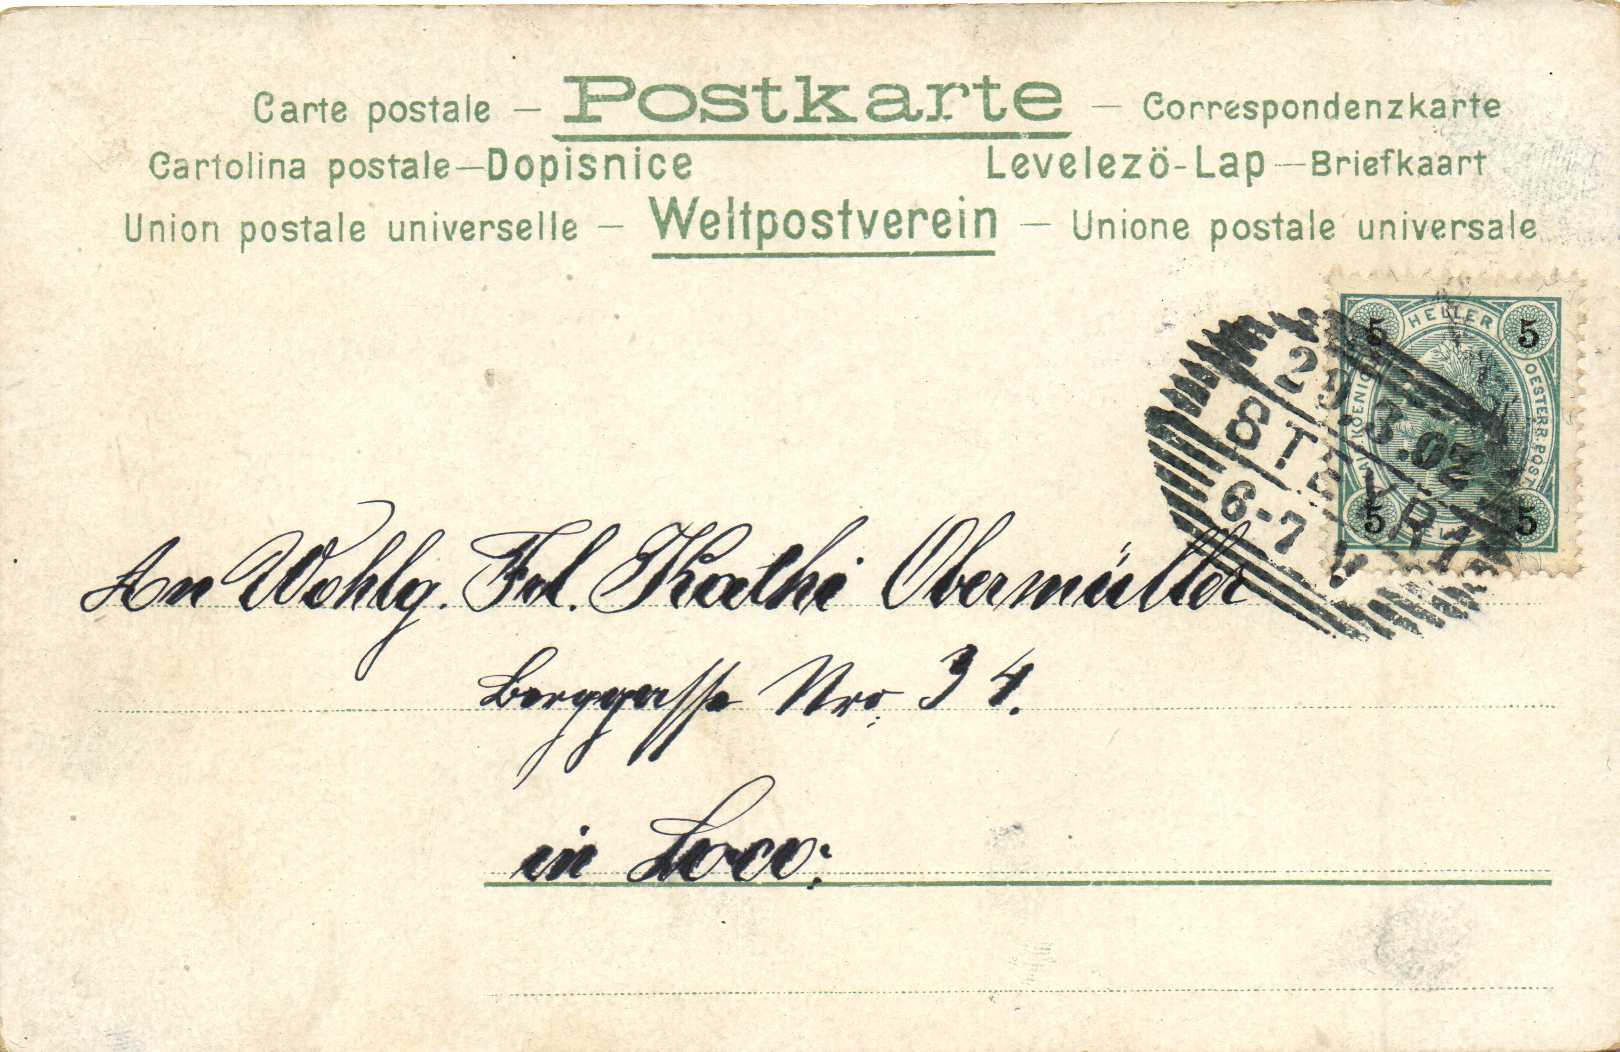 Carte postale — Postkarte — Correspondenzkarte
Cartolina postale—Dopisnice Levelezö-Lap—Briefkaart
Union postale universelle — Weltpostverein — Unione postale universale
5 HELLER 5
OESTERR. POST
5 5
29.3.02
STEYR 1
6-7 V
An Wohlg. Frl. Kathi Obermüller
Berggasse Nro. 34.
in Loco.